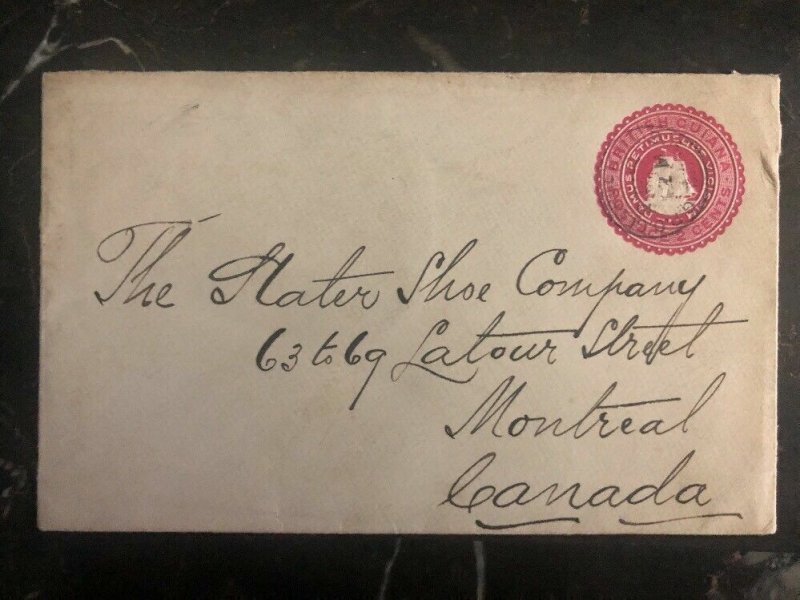 BRITISH GUIANA
DAMUS PETIMUSQUE VICISSIM
The Slater Shoe Company
63 to 69 Latour Street
Montreal
Canada